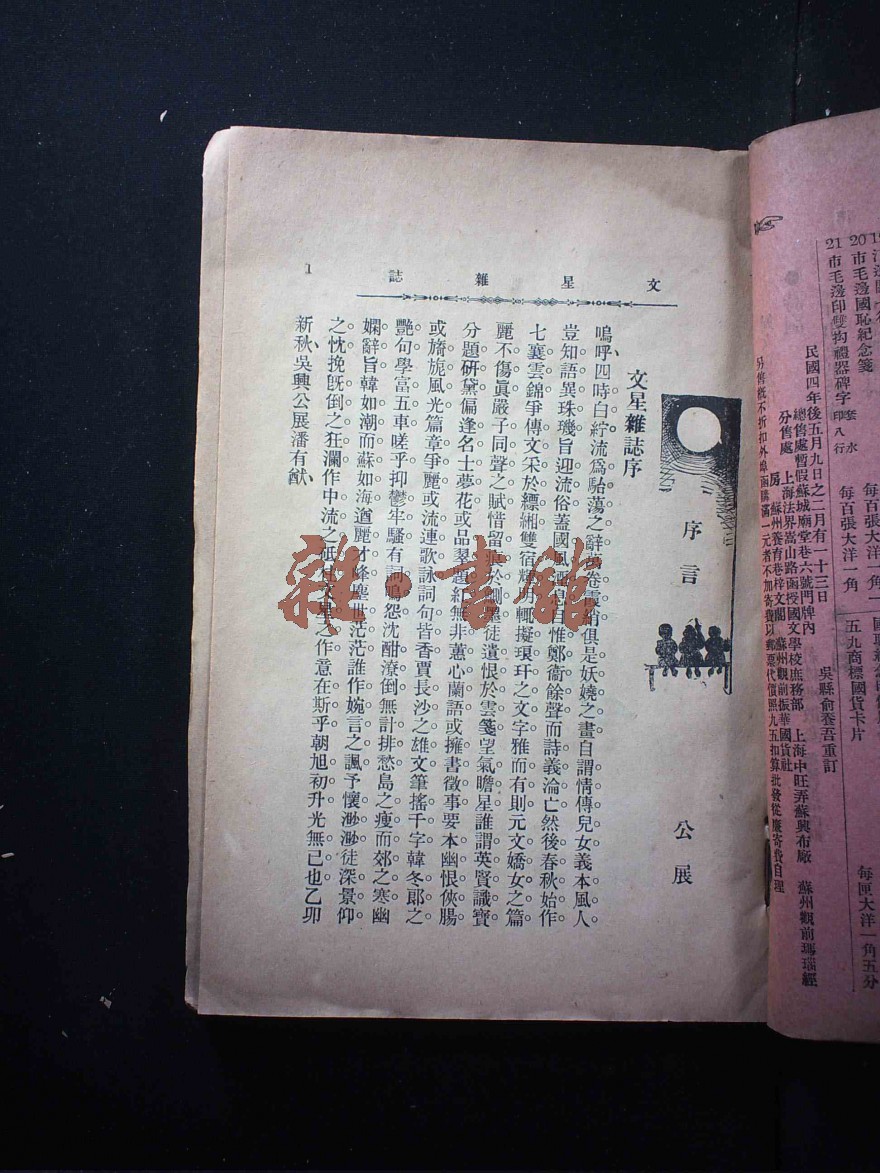 文星雜誌
1
序言
公展
文星雜誌序
嗚呼四時白紵流爲駘蕩之辭萬卷霞綃俱是妖嬈之畫自謂情傳兒女義本風人
豈知語異珠璣旨迎流俗蓋國風 息自惟鄭衞餘聲而詩義淪亡然後春秋始作
七襄雲錦爭傳文采於縹緗雙宿 輒擬瑣玕之文字雅而有則元文嬌女之篇
麗不傷眞嚴子同聲之賦惜留 於 墨徒遺恨於雲箋望氣瞻星誰謂英賢識寳
分題研黛偏逢名士夢花或品翠題紅無非蕙心蘭語或擁書徵事要本幽恨俠腸
或旖旎風光篇章爭麗或流連歌詠詞句皆香賈長沙之雄文筆搖千字韓冬郎之
艷句學富五車嗟乎抑鬱牢騷有詞鳴怨沈酣潦倒無計排愁島之瘦而郊之寒幽
嫻辭旨韓如潮而蘇如海遒麗才峰塵世茫茫誰作婉言之諷予懷渺渺徒深景仰
之忱挽既倒之狂瀾作中流之砥柱文星之作意在斯乎朝旭初升光無已也乙卯
新秋吳興公展潘有猷
雜·書館
20 市毛邊國恥紀念箋
21 市毛邊印雙拘禮器碑字 套永印八行
每百張大洋一角一
每百張大洋一角
五九商標國貨卡片
每匣大洋一角五分
民國四年後五月九日之二月有一十三日
吳縣俞養吾重訂
總售處暫假蘇城廟堂巷六號門牌內
分售處 上海法界嵩山路函授國文學校庶務部 上海中旺弄蘇興布廠 蘇州觀前瑪瑙經
房 蘇州養育巷梓文閣 蘇州觀前振華國貨社
另售概不折扣外埠函購滿一元者不加寄費以郵票代價照九五扣算批發從廉寄費自理